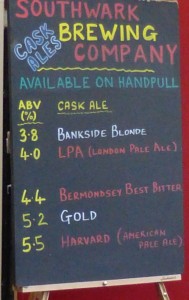 SOUTHWARK
CASK ALES
BREWING
COMPANY
AVAILABLE ON HANDPULL
ABV (%) CASK ALE
3.8 BANKSIDE BLONDE
4.0 LPA (LONDON PALE ALE)
4.4 BERMONDSEY BEST BITTER
5.2 GOLD
5.5 HARVARD (AMERICAN PALE ALE)